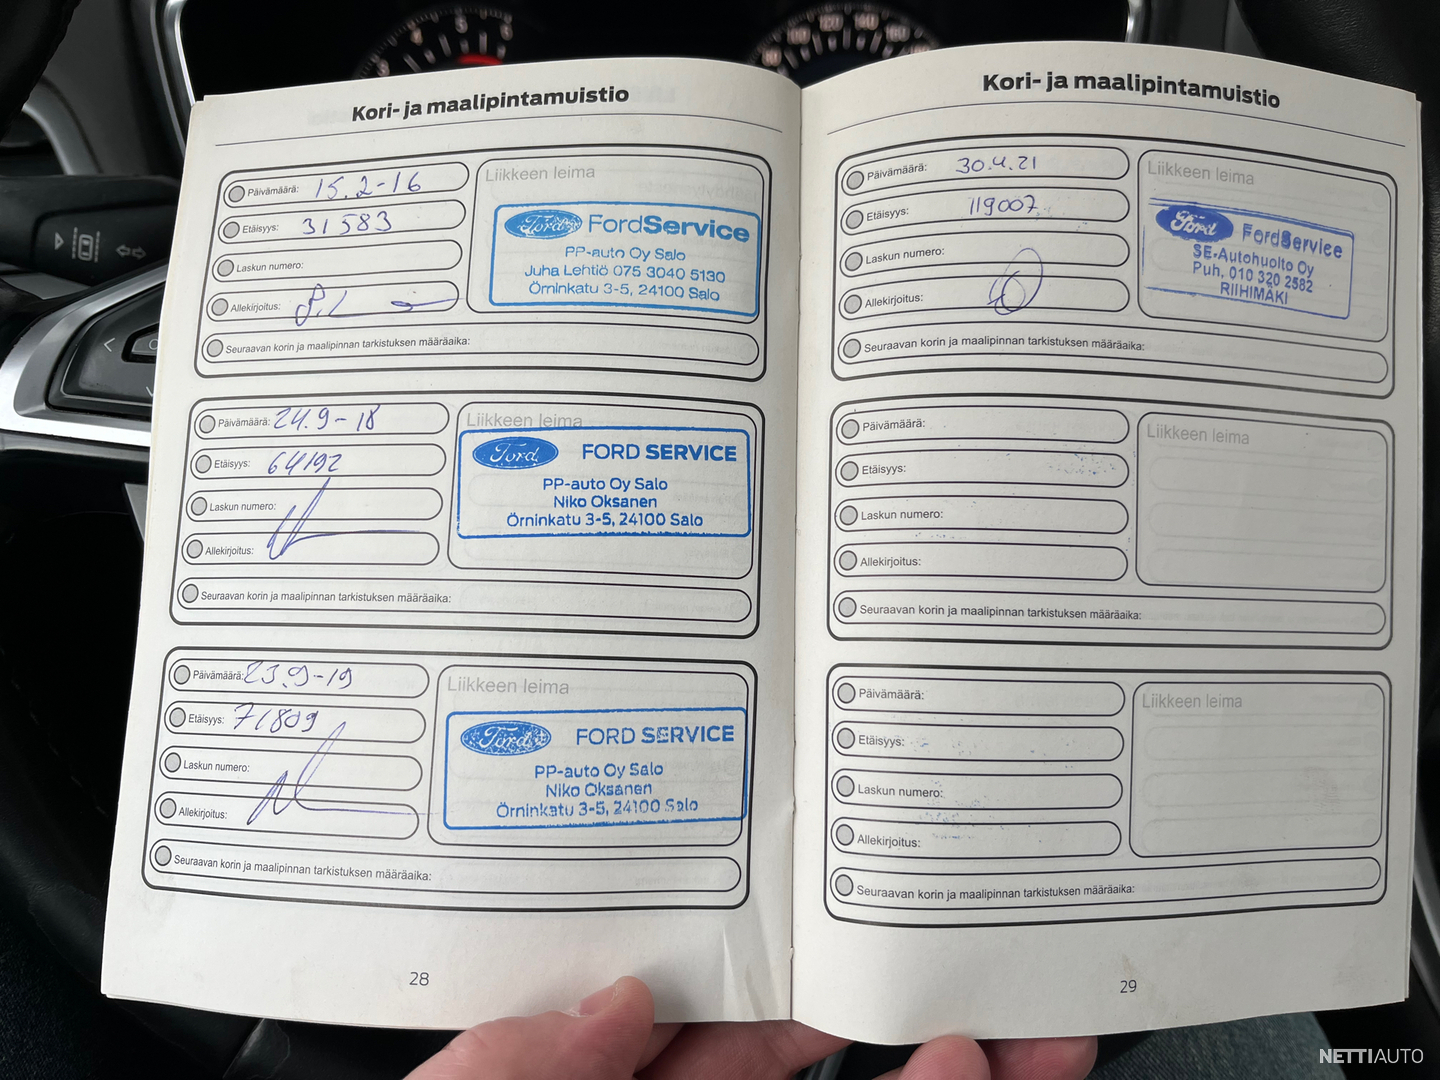 Kori- ja maalipintamuistio
Päivämäärä: 15.2-16
Etäisyys: 31583
Laskun numero:
Allekirjoitus:
Liikkeen leima
Ford FordService
PP-auto Oy Salo
Juha Lehtiö 075 3040 5130
Örninkatu 3-5, 24100 Salo
Seuraavan korin ja maalipinnan tarkistuksen määräaika:
Päivämäärä: 24.9-18
Etäisyys: 64192
Laskun numero:
Allekirjoitus:
Liikkeen leima
Ford FORD SERVICE
PP-auto Oy Salo
Niko Oksanen
Örninkatu 3-5, 24100 Salo
Seuraavan korin ja maalipinnan tarkistuksen määräaika:
Päivämäärä: 23.9-19
Etäisyys: 71809
Laskun numero:
Allekirjoitus:
Liikkeen leima
Ford FORD SERVICE
PP-auto Oy Salo
Niko Oksanen
Örninkatu 3-5, 24100 Salo
Seuraavan korin ja maalipinnan tarkistuksen määräaika:
28
Kori- ja maalipintamuistio
Päivämäärä: 30.4.21
Etäisyys: 119007
Laskun numero:
Allekirjoitus:
Liikkeen leima
Ford FordService
SE-Autohuolto Oy
Puh. 010 320 2582
RIIHIMÄKI
Seuraavan korin ja maalipinnan tarkistuksen määräaika:
Päivämäärä:
Etäisyys:
Laskun numero:
Allekirjoitus:
Liikkeen leima
Seuraavan korin ja maalipinnan tarkistuksen määräaika:
Päivämäärä:
Etäisyys:
Laskun numero:
Allekirjoitus:
Liikkeen leima
Seuraavan korin ja maalipinnan tarkistuksen määräaika:
29
NETTIAUTO